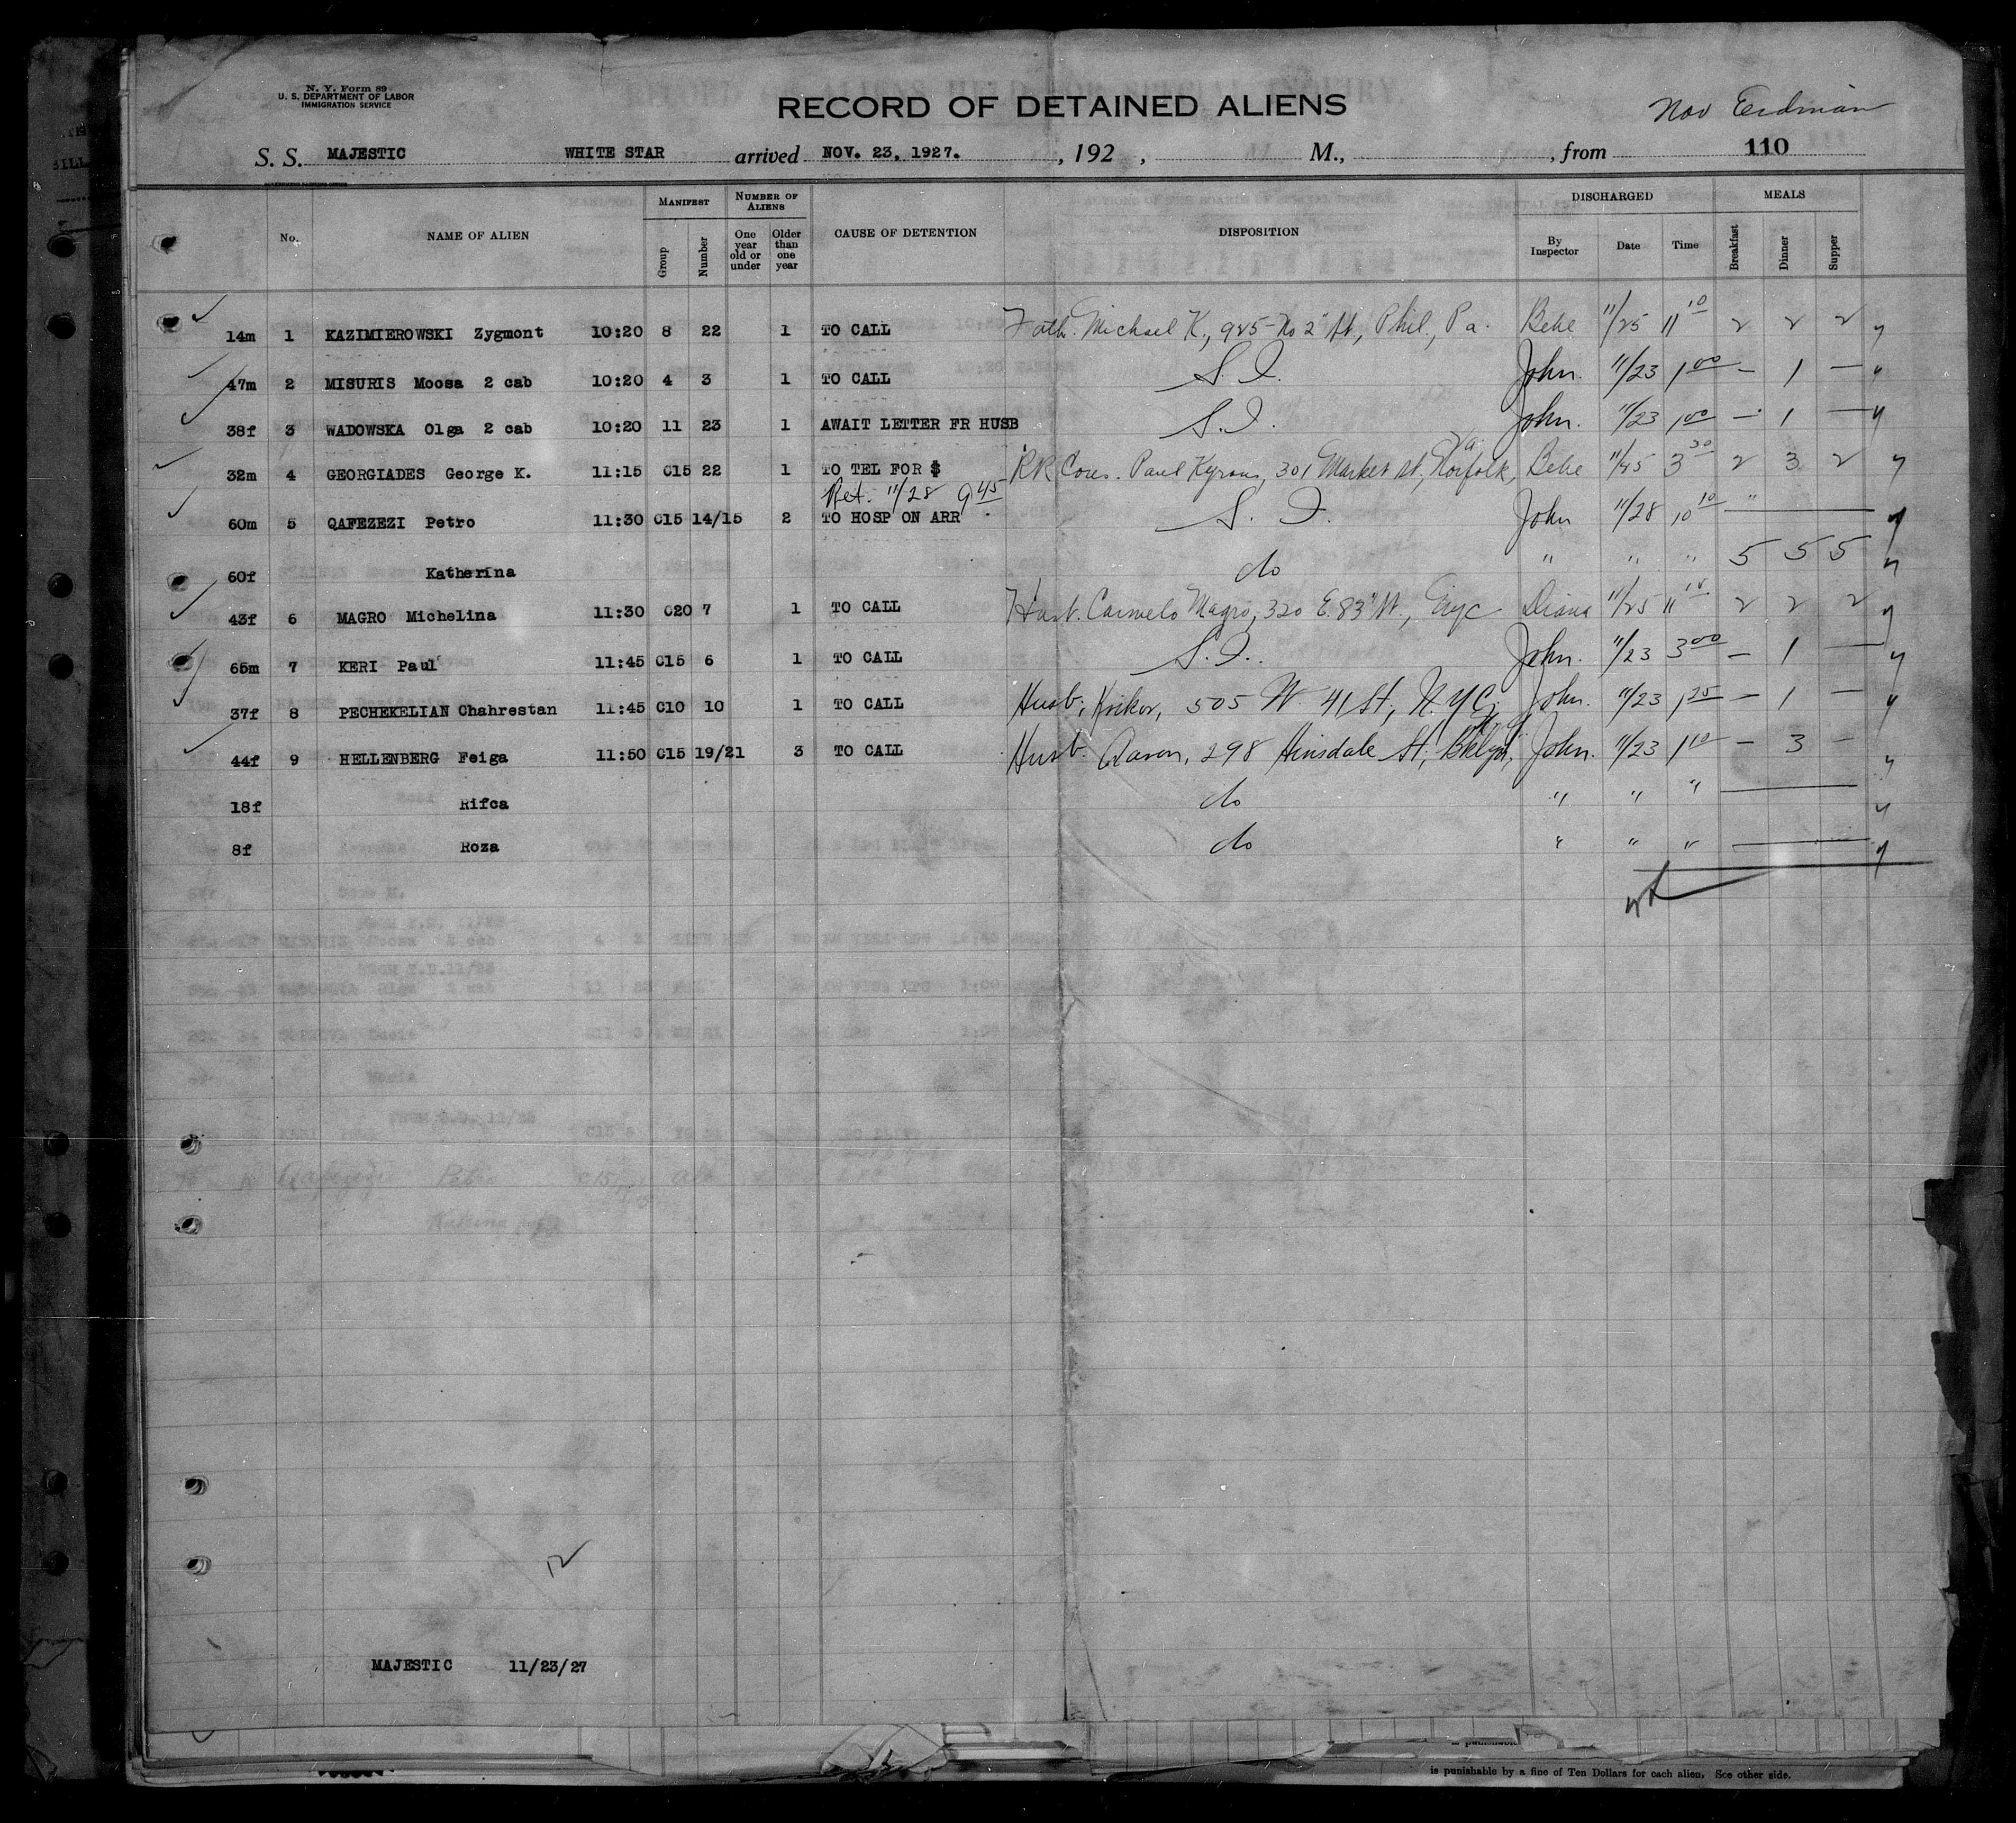 N. Y. Form 89
U. S. DEPARTMENT OF LABOR
IMMIGRATION SERVICE
RECORD OF DETAINED ALIENS
Nov Erdman
S. S. MAJESTIC WHITE STAR arrived NOV. 23, 1927. , 192 , M., , from 110
No. NAME OF ALIEN MANIFEST Group Number NUMBER OF ALIENS One year old or under Older than one year CAUSE OF DETENTION DISPOSITION DISCHARGED By Inspector Date Time MEALS Breakfast Dinner Supper
14m 1 KAZIMIEROWSKI Zygmont 10:20 8 22 1 TO CALL Fath. Michael K., 925 No 2" St, Phil, Pa. Bebe 11/25 11 10 2 2 2 y
47m 2 MISURIS Moosa 2 cab 10:20 4 3 1 TO CALL S.I. John. 11/23 1 00 – 1 – y
38f 3 WADOWSKA Olga 2 cab 10:20 11 23 1 AWAIT LETTER FR HUSB S.I. John. 11/23 1 00 – 1 – y
32m 4 GEORGIADES George K. 11:15 C15 22 1 TO TEL FOR $ RR Cous. Paul Kyrous, 301 Market St, Norfolk, Va Bebe 11/25 3 30 2 3 2 y
Ret. 11/28 9 45
60m 5 QAFEZEZI Petro 11:30 C15 14/15 2 TO HOSP ON ARR S. I. John 11/28 10 10 " y
60f Katherina do " " " 5 5 5 y
43f 6 MAGRO Michelina 11:30 C20 7 1 TO CALL Husb. Carmelo Magro, 320 E. 83" St, Diana 11/25 11 2 2 2 y
65m 7 KERI Paul 11:45 C15 6 1 TO CALL S.I. John. 11/23 3 00 – 1 – y
37f 8 PECHEKELIAN Chahrestan 11:45 C10 10 1 TO CALL Husb, Krikor, 505 W. 41 St, N.Y.C. John. 11/23 1 25 – 1 – y
44f 9 HELLENBERG Feiga 11:50 C15 19/21 3 TO CALL Husb. Aaron, 298 Hinsdale St, Bklyn, N.Y. John. 11/23 1 10 – 3 – y
18f Rifca do " " " y
8f Roza do " " " y
12
MAJESTIC 11/23/27
is punishable by a fine of Ten Dollars for each alien. See other side.